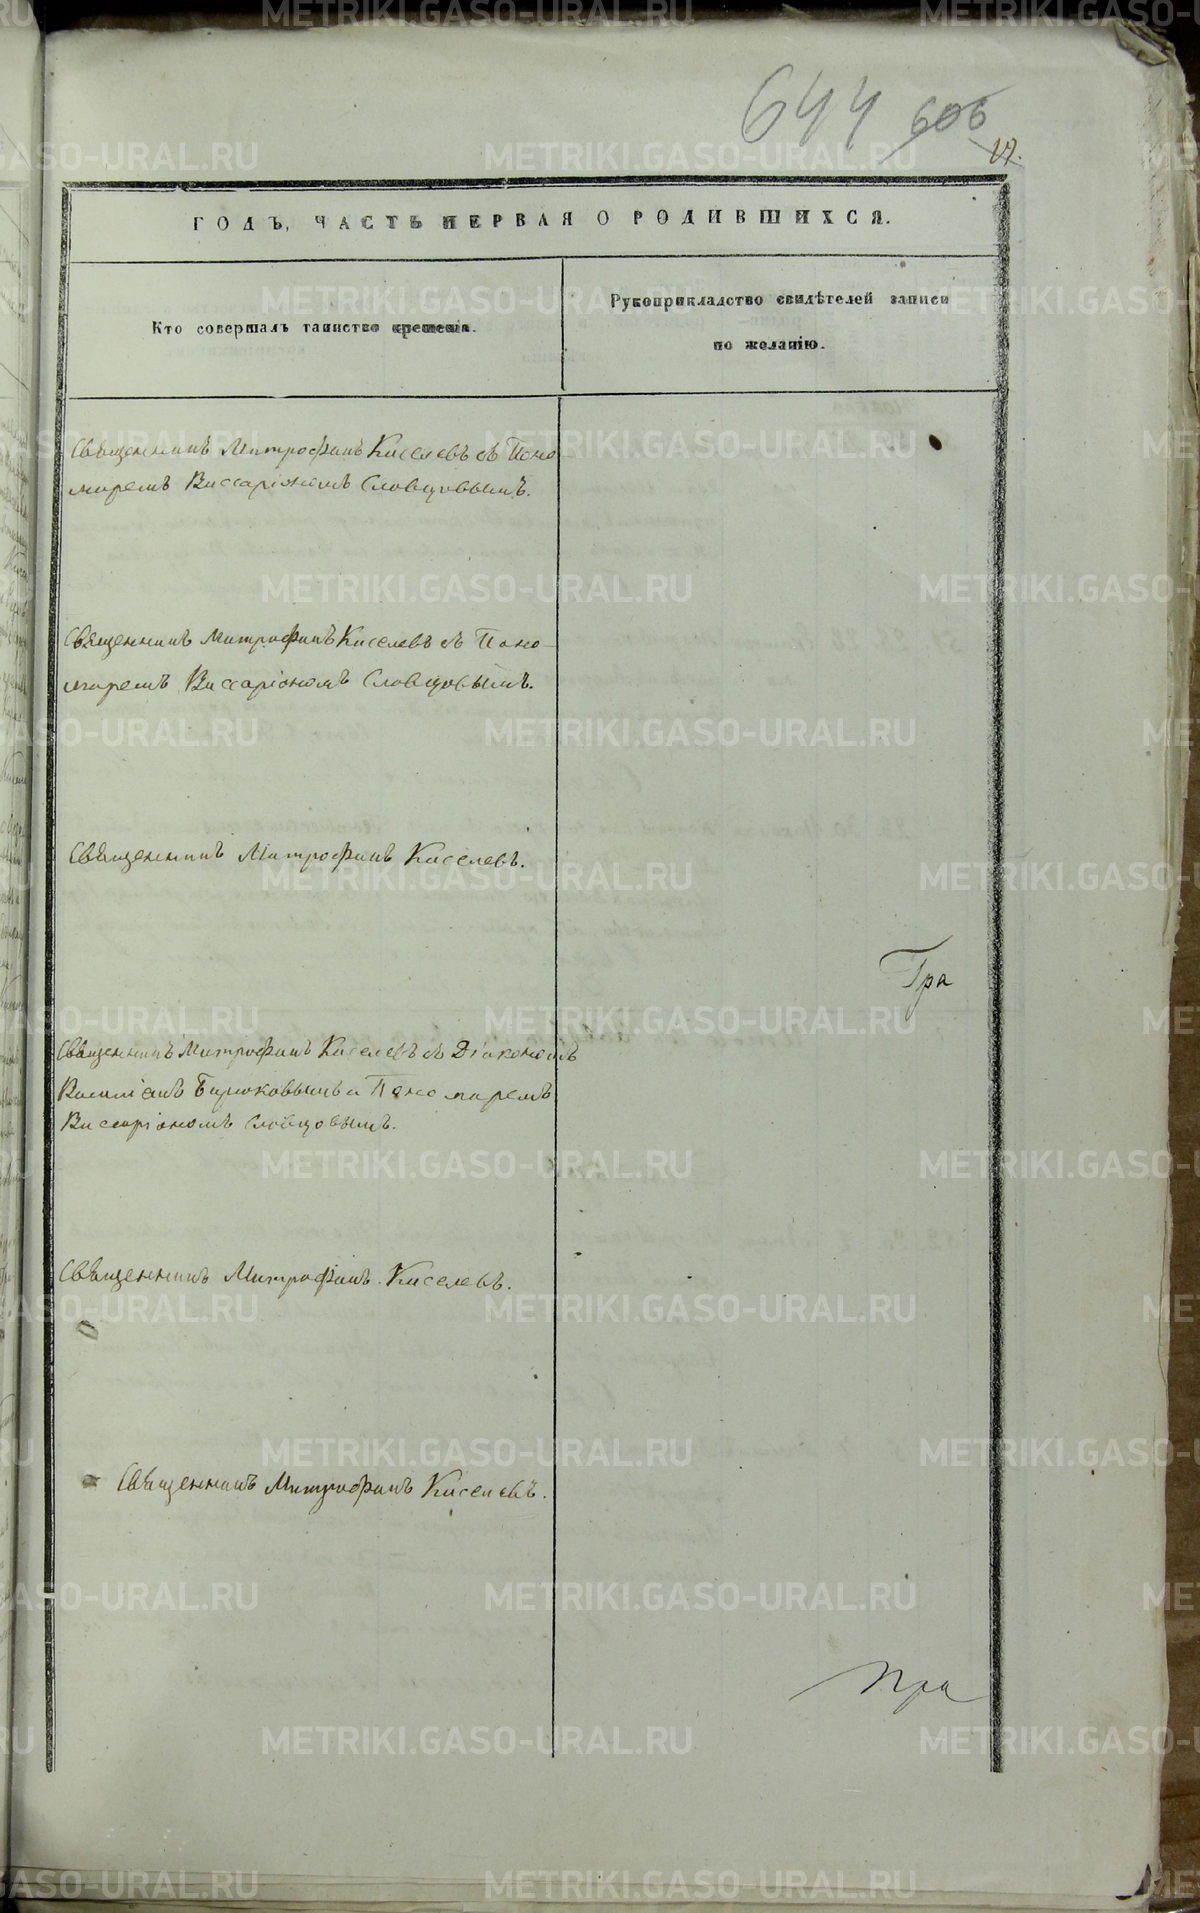 644 606
17.
ГОДЪ, ЧАСТЬ ПЕРВАЯ О РОДИВШИХСЯ.
Кто совершалъ таинство крещенія.
Рукоприкладство свидѣтелей записи
по желанію.
Священникъ Митрофанъ Киселевъ съ Поно
маремъ Виссаріономъ Словцовымъ.
Священникъ Митрофанъ Киселевъ съ Поно-
маремъ Виссаріономъ Словцовымъ.
Священникъ Митрофанъ Киселевъ.
Гра
Священникъ Митрофанъ Киселевъ съ Діакономъ
Василіемъ Бирюковымъ и Пономаремъ
Виссаріономъ Словцовымъ.
Священникъ Митрофанъ Киселевъ.
Священникъ Митрофанъ Киселевъ.
При
METRIKI.GASO-URAL.RU